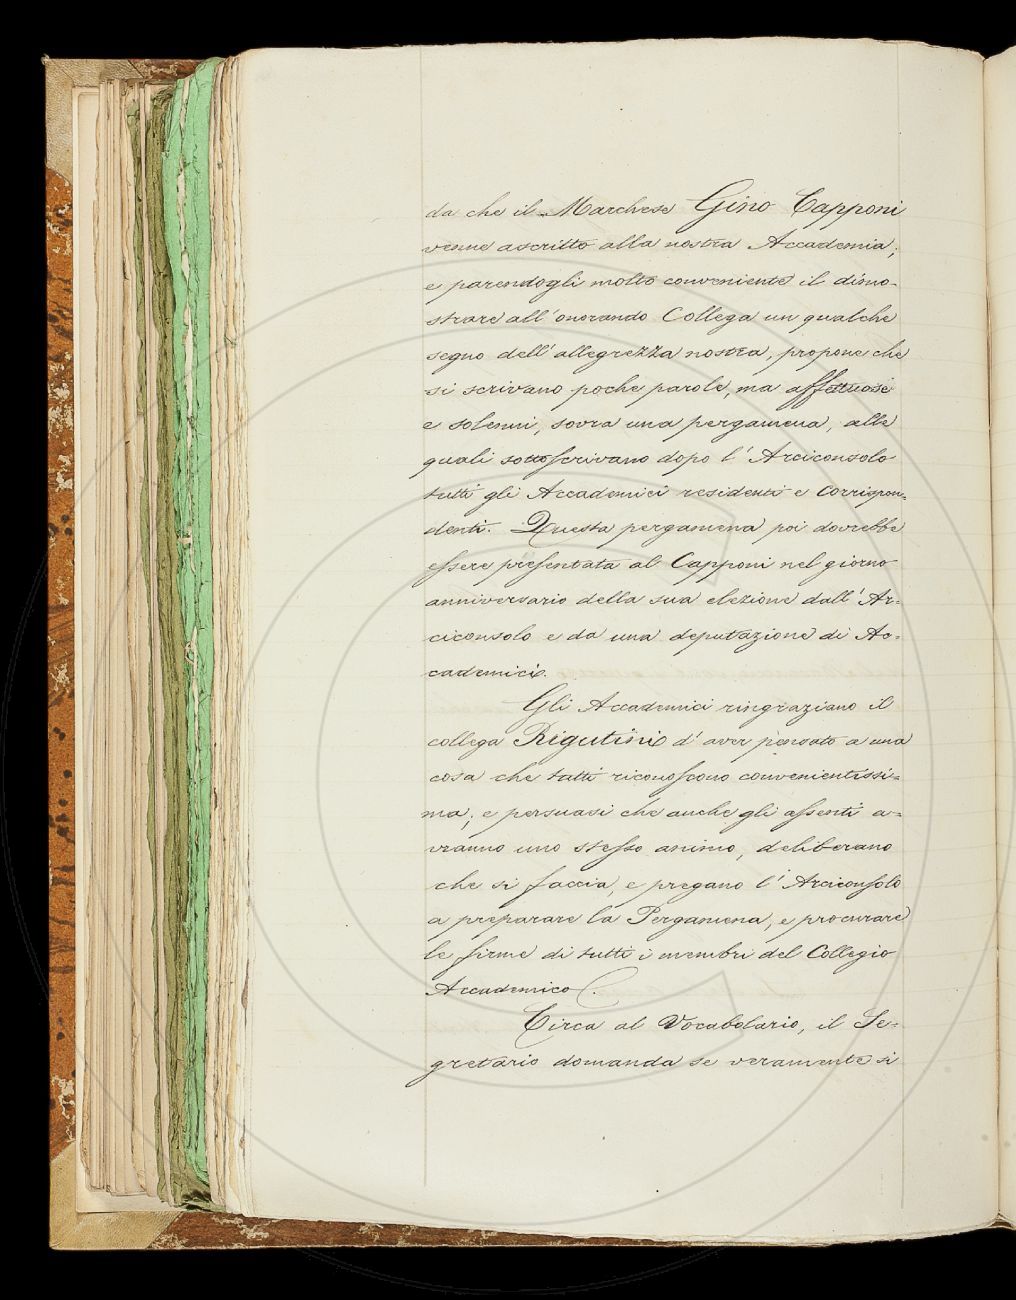 da che il Marchese Gino Capponi
venne ascritto alla nostra Accademia;
e parendogli molto conveniente il dimo-
strare all'onorando Collega un qualche
segno dell'allegrezza nostra, propone che
si scrivano poche parole, ma affettuose
e solenni, sovra una pergamena, alle
quali sottoscrivano dopo l'Arciconsolo
tutti gli Accademici residenti e corrispon-
denti. Questa pergamena poi dovrebbe
essere presentata al Capponi nel giorno
anniversario della sua elezione dall'Ar=
ciconsolo e da una deputazione di Ac=
cademici.
Gli Accademici ringraziano il
collega Rigutini d'aver pensato a una
cosa che tutti riconoscono convenientissi=
ma; e persuasi che anche gli assenti a=
vranno uno stesso animo, deliberano
che si faccia, e pregano l'Arciconsolo
a preparare la Pergamena, e procurare
le firme di tutti i membri del Collegio
Accademico.
Circa al Vocabolario, il Se=
gretario domanda se veramente si